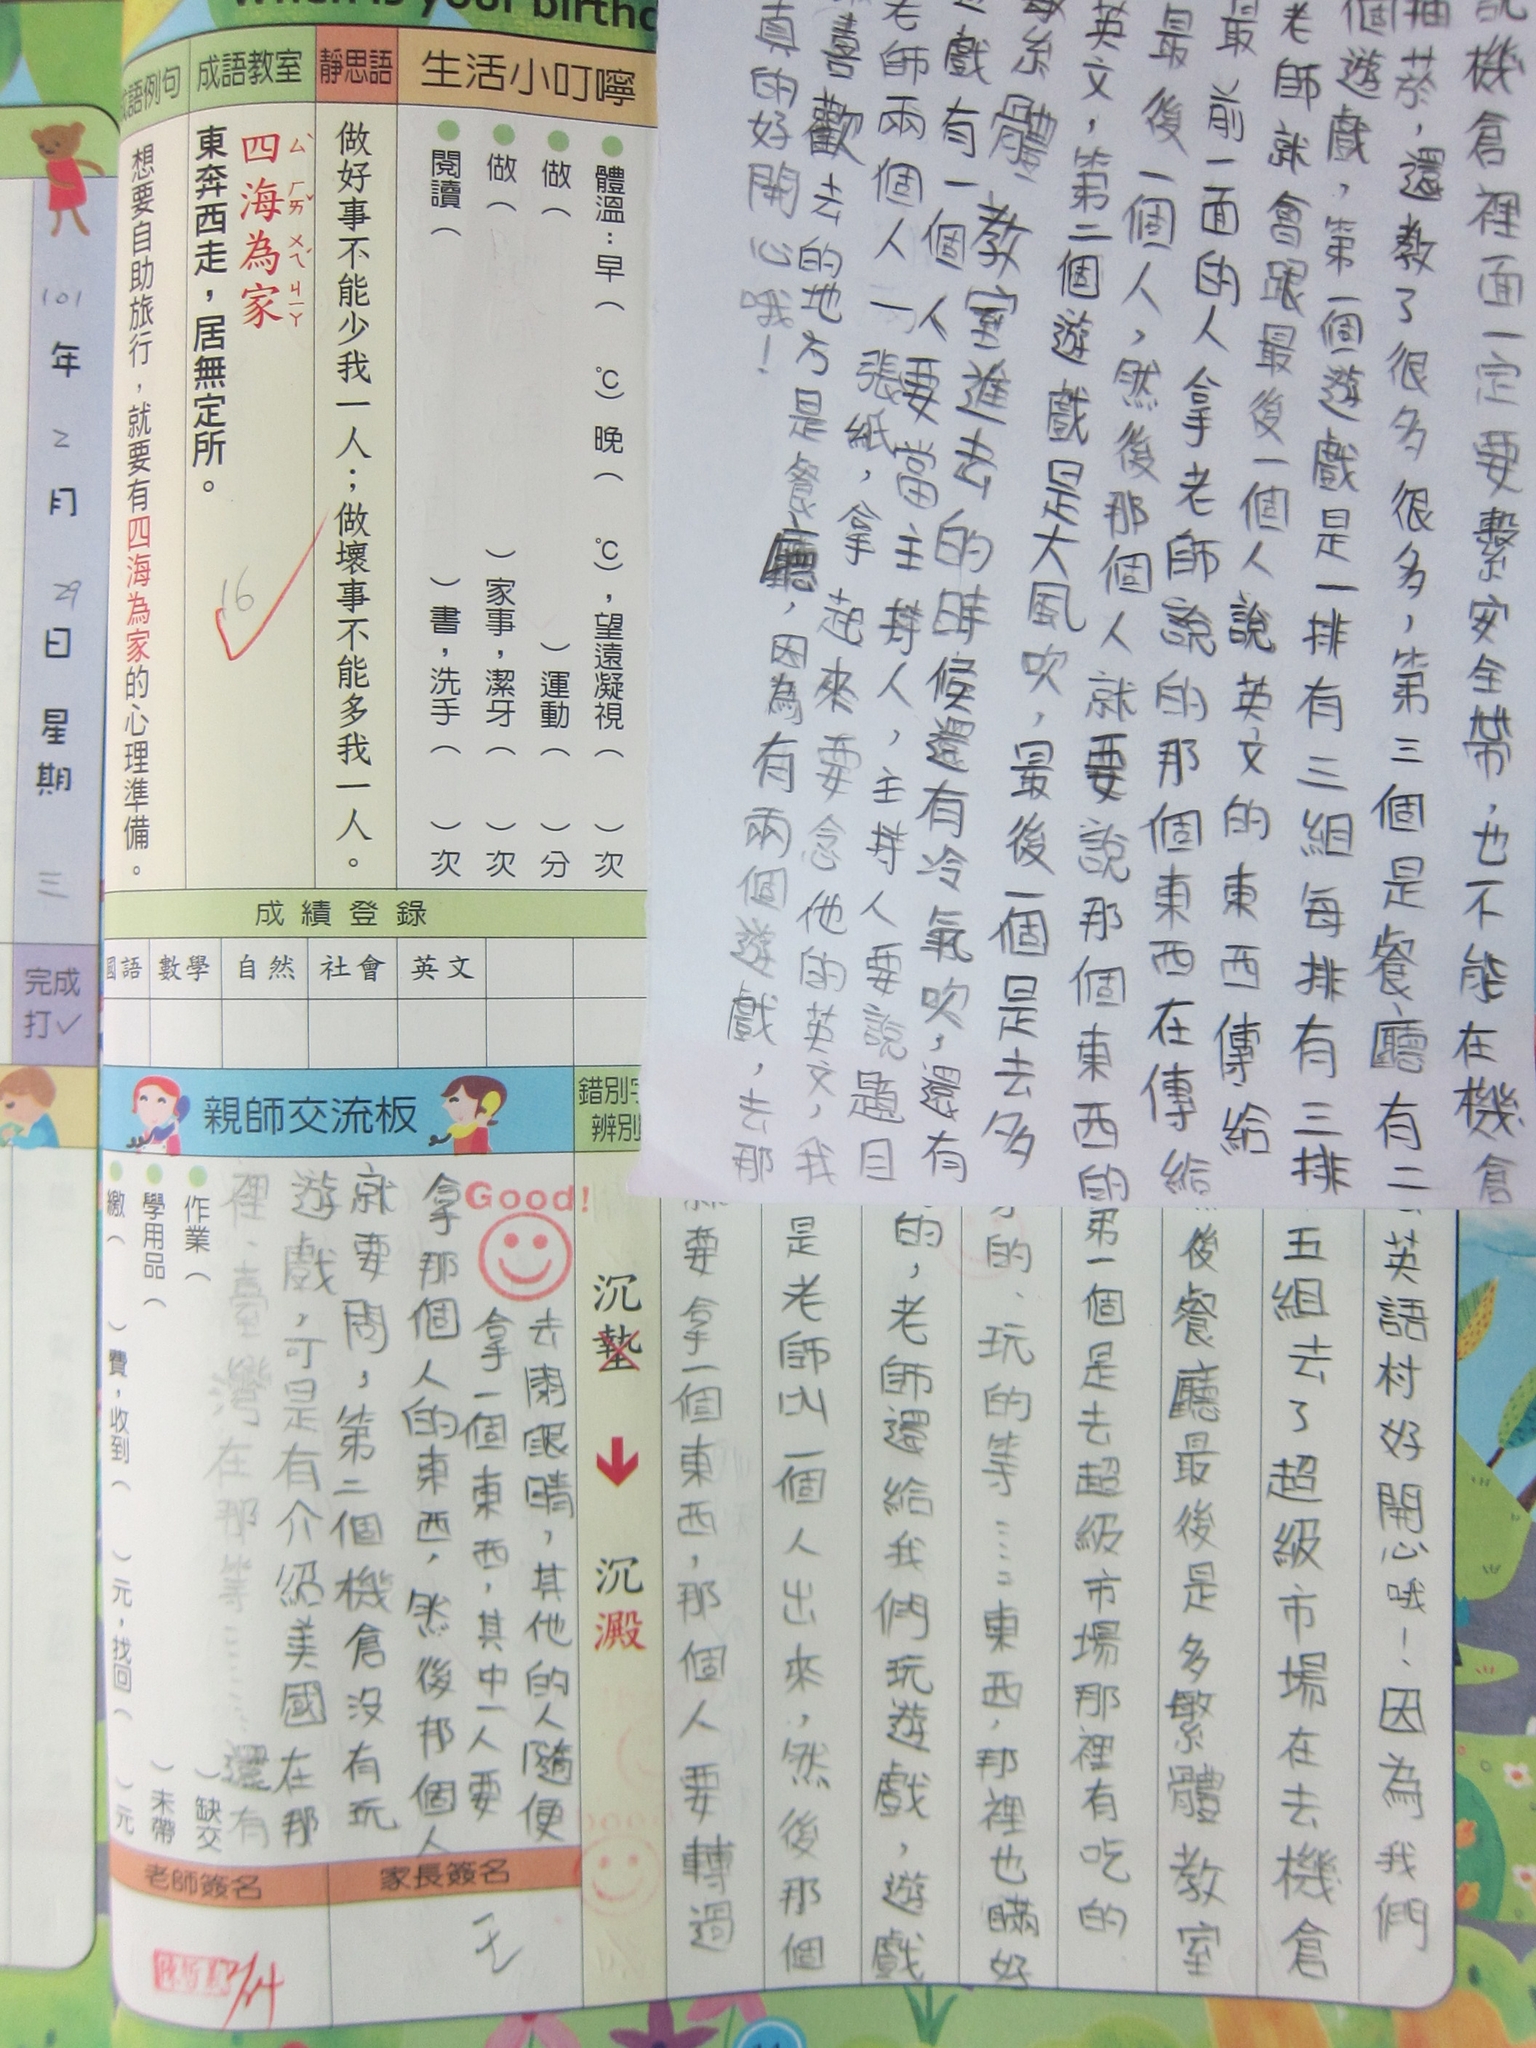 When is your birthd
生活小叮嚀
體溫：早（ ℃）晚（ ℃），望遠凝視（ ）次
做（ ）運動（ ）分
做（ ）家事，潔牙（ ）次
閱讀（ ）書，洗手（ ）次
靜思語
做好事不能少我一人；做壞事不能多我一人。
成語教室
四海為家
ㄙˋ ㄏㄞˇ ㄨㄟˊ ㄐㄧㄚ
東奔西走，居無定所。
16
語例句
想要自助旅行，就要有四海為家的心理準備。
101年2月29日星期三
完成
打✓
成績登錄
國語 數學 自然 社會 英文
機倉裡面一定要繫安全帶，也不能在機倉
抽菸，還教了很多很多，第三個是餐廳有二
個遊戲，第一個遊戲是一排有三組每排有三排
老師就會跟最後一個人說英文的東西傳給
最前一面的人拿老師說的那個東西在傳給
最後一個人，然後那個人就要說那個東西的
英文，第二個遊戲是大風吹，最後一個是去多
繁體教室進去的時候還有冷氣吹，還有
遊戲有一個人要當主持人，主持人要說題目
老師兩個人一張紙，拿起來要念他的英文，我
喜歡去的地方是餐廳，因為有兩個遊戲，去那
真的好開心哦！
英語村好開心哦！因為我們
五組去了超級市場在去機倉
後餐廳最後是多繁體教室
第一個是去超級市場那裡有吃的
的、玩的等……東西，那裡也瞞好
的，老師還給我們玩遊戲，遊戲
是老師叫一個人出來，然後那個
要拿一個東西，那個人要轉過
錯別字
辨別
沉墊
沉澱
親師交流板
Good!
去閉眼睛，其他的人隨便
拿一個東西，其中一人要
拿那個人的東西，然後那個人
就要問，第二個機倉沒有玩
遊戲，可是有介紹美國在那
裡、臺灣在那等……還有
作業（ ）缺交
學用品（ ）未帶
繳（ ）費，收到（ ）元，找回（ ）元
家長簽名
老師簽名